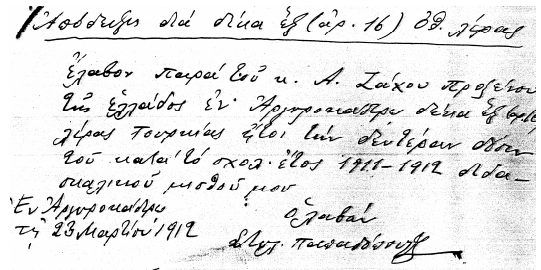 Ἀπόδειξις διά δέκα ἕξ (ἀρ. 16) Ὀθ. λίρας
Ἔλαβον παρά τοῦ κ. Α. Σάχου προξένου
τῆς Ἑλλάδος ἐν Ἀργυροκάστρῳ δέκα ἕξ
λίρας Τουρκίας ἤτοι τήν δευτέραν δόσιν
τοῦ κατά τό σχολ. ἔτος 1911-1912 διδα-
σκαλικοῦ μισθοῦ μου
Ἐν Ἀργυροκάστρῳ
τῇ 23 Μαρτίου 1912
Ὁ λαβών
Στυλ. Παπαδόπουλος